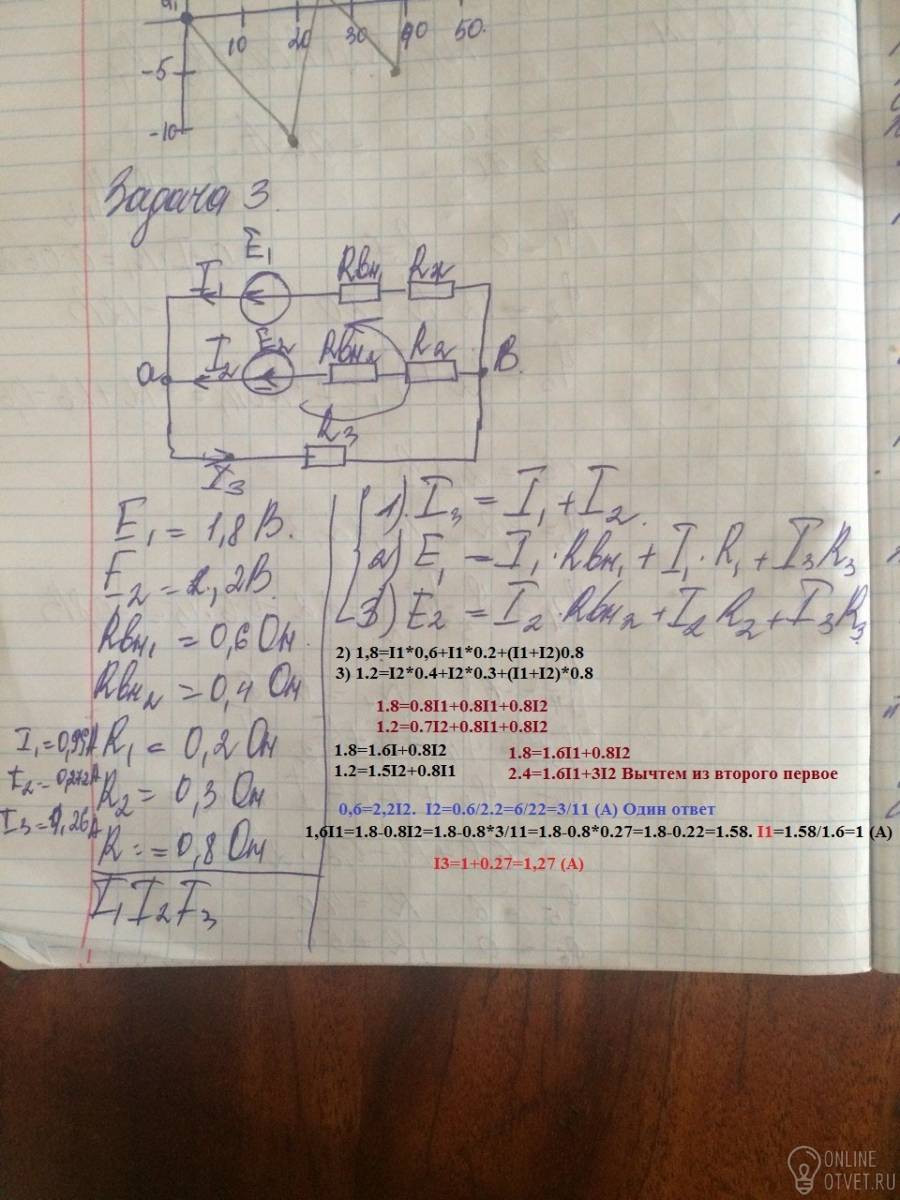 10 20 30 40 50.
-5
-10
Задача 3.
E₁
I₁ Rвн₁
I₂ E₂ Rвн₂ R₂
a B.
R₃
I₃
E₁ = 1,8 В.
Rвн₁ = 0,6 Ом
Rвн₂ = 0,4 Ом
I₁=0,99А R₁ = 0,2 Ом
I₂=0,272А R₂ = 0,3 Ом
R = 0,8 Ом
I₁ I₂ I₃
1). I₃ = I₁ + I₂.
2) E₁ = I₁·Rвн₁ + I₁·R₁ + I₃R₃
3) E₂ = I₂·Rвн₂ + I₂R₂ + I₃R₃
2) 1,8=I1*0,6+I1*0.2+(I1+I2)0.8
3) 1.2=I2*0.4+I2*0.3+(I1+I2)*0.8
1.8=0.8I1+0.8I1+0.8I2
1.2=0.7I2+0.8I1+0.8I2
1.8=1.6I+0.8I2
1.2=1.5I2+0.8I1
1.8=1.6I1+0.8I2
2.4=1.6I1+3I2 Вычтем из второго первое
0,6=2,2I2. I2=0.6/2.2=6/22=3/11 (А) Один ответ
1,6I1=1.8-0.8I2=1.8-0.8*3/11=1.8-0.8*0.27=1.8-0.22=1.58. I1=1.58/1.6=1 (А)
I3=1+0.27=1,27 (А)
ONLINE
OTVET.RU